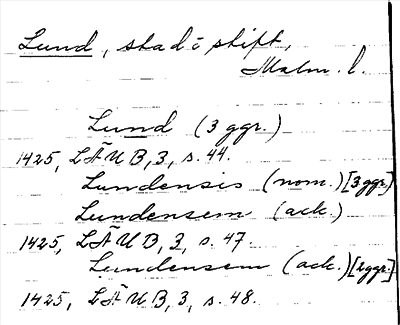 Lund, stad o stift,
Malm. l.
Lund (3 ggr.)
1425, LÄUB, 3, s. 44.
Lundensis (nom.) [3 ggr.]
Lundensem (ack.)
1425, LÄUB, 3, s. 47.
Lundensem (ack.) [2 ggr.]
1425, LÄUB, 3, s. 48.